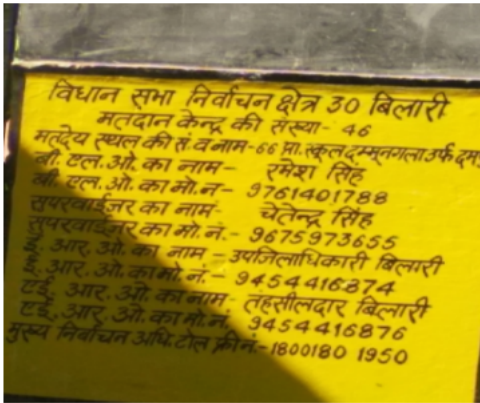 विधान सभा निर्वाचन क्षेत्र 30 बिलारी
मतदान केन्द्र की संख्या- 46
मतदेय स्थल की सं. व नाम-66 प्रा. स्कूल दम्मूनगला उर्फ
बी. एल. ओ. का नाम- रमेश सिंह
बी. एल. ओ. का मो. न- 9761401788
सुपरवाईजर का नाम- चेतेन्द्र सिंह
सुपरवाईजर का मो. नं.- 9675973655
आर. ओ. का नाम - उपजिलाधिकारी बिलारी
आर. ओ. का मो. नं.- 9454416874
ए. ई. आर. ओ. का नाम- तहसीलदार बिलारी
ए. ई. आर. ओ. का मो. न. 9454416876
मुख्य निर्वाचन अधि. टोल फ्री नं.-1800180 1950